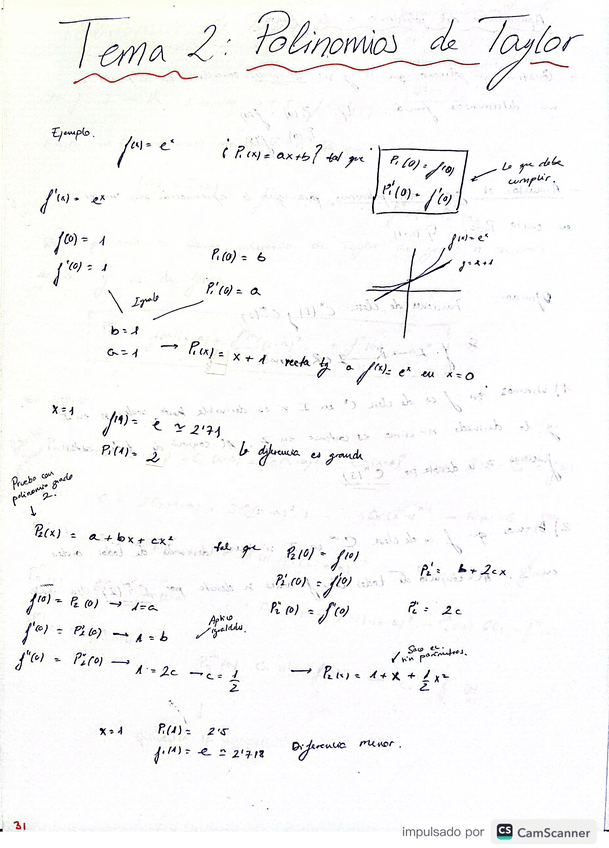 Tema 2: Polinomios de Taylor
Ejemplo.
f(x) = e^x ¿P₁(x) = ax+b? tal que P₁(0) = f(0)
P₁'(0) = f'(0)
Lo que debe cumplir.
f'(x) = e^x
f(0) = 1
f'(0) = 1
P₁(0) = b
P₁'(0) = a
f(x) = e^x
y = x+1
Igualo
b = 1
a = 1 → P₁(x) = x + 1 recta tg a f(x) = e^x en x = 0
x = 1
f(1) = e ≃ 2'71
P₁(1) = 2
la diferencia es grande
Pruebo con
polinomio grado
2.
P₂(x) = a + bx + cx² tal que P₂(0) = f(0)
P₂'(0) = f'(0)
P₂''(0) = f''(0)
P₂' = b + 2cx
P₂'' = 2c
f(0) = P₂(0) → 1 = a
f'(0) = P₂'(0) → 1 = b
f''(0) = P₂''(0) → 1 = 2c → c = 1/2
Aplico
igualdad.
Saco el
sin parámetros.
→ P₂(x) = 1 + x + 1/2 x²
x = 1 P₁(1) = 2'5
f(1) = e ≃ 2'718 Diferencia menor.
31
impulsado por CS CamScanner